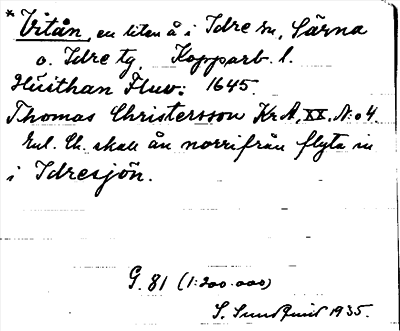 * Vitån, en liten å i Idre sn, Särna
o. Idre tg, Kopparb. l.
Huithan Fluv: 1645.
Thomas Christersson KrA, XX. N:o 4.
Enl. Ch. skall ån norrifrån flyta in
i Idresjön.
G. 81 (1:200.000)
S. Sundquist 1935.